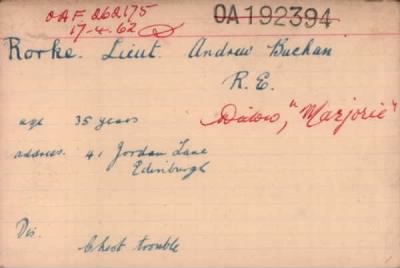 OAF 262175
17-4-62
OA192394
Rorke. Lieut. Andrew Buchan
R.E.
age 35 years
Widow, "Marjorie"
address. 41 Jordan Lane
Edinburgh
Dis.
Chest trouble